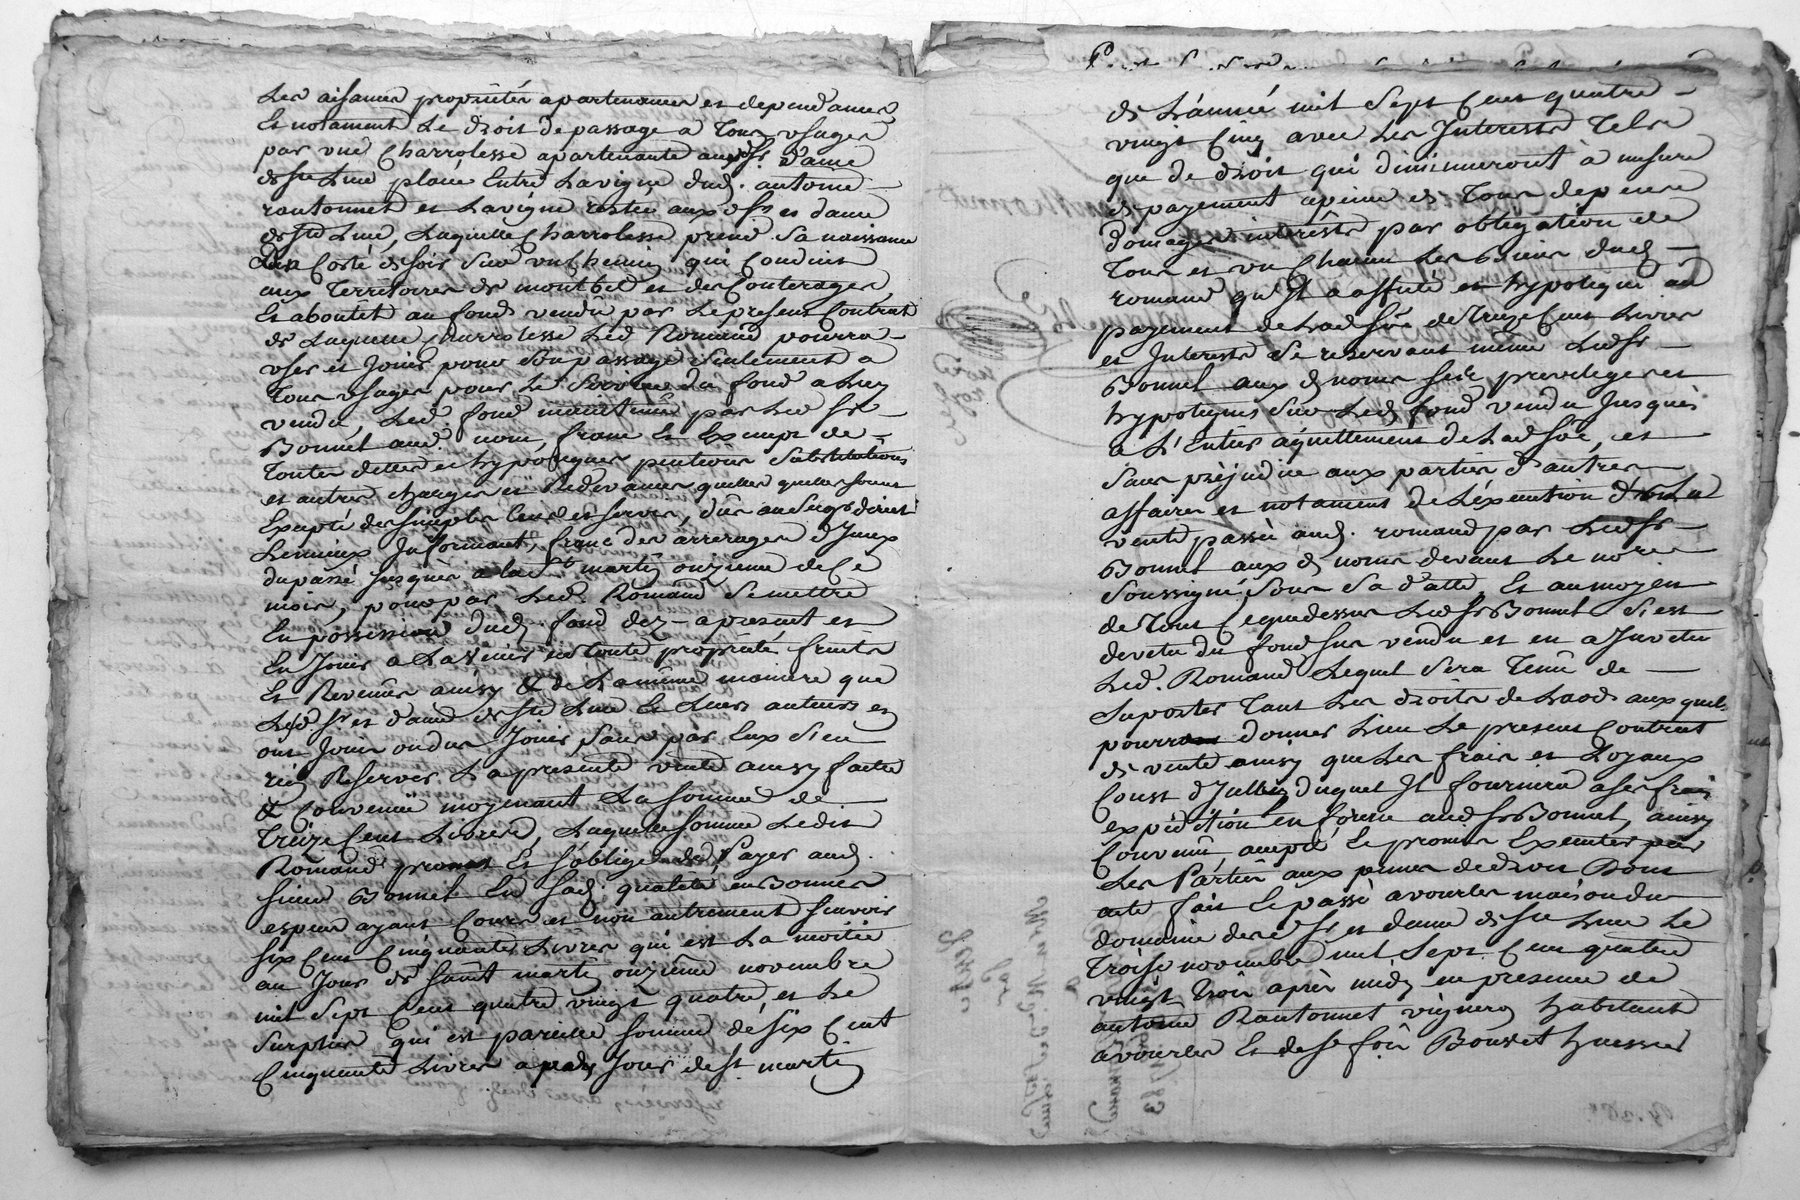 Les aisances proprietés apartenances et dependances
Et notament Le droit de passage a Tous usages
par une Charrolesse apartenante auxd. Sr. d'ame
de Ste Lucie placée Entre La vigne dud. antoine
rantonnet et La vigne restée aux d. Sr et dame
de Ste Lucie, Laquelle Charrolesse prend Sa naissance
du Costé de soir sur un chemin qui Conduit
aux Territoires de montbel et des Conterages
Et aboutit au fond vendu par Le present Contrat
de Laquelle charrolesse Led Romand pourra
user et Jouir pour Son passage seulement a
Tous usages pour Le Service du fond a Luy
vendu, Led. fond maintenu par Led Sr
Bonnel aud. nom, franc Et Exempt de
Toutes dettes et hypoteques pentions Substitutions
et autres charges et Redevances quelles quelles soient
Excepté des simples Cens et servis, dûs au Seigr direct
Lemieux Informant, franc des arrerages d'Iceux
du passé jusques a la St martin onzieme de Ce
mois, pour par Led. Romand Se mettre
En possession dud. fond dez-apresent et
En Jouir a Lavenir en toute propriété fruits
Et Revenûs ainsy & de La même maniere que
Led Sr et dame de Ste Lucie Et Leurs auteurs en
ont Joüi ou dus Joüir sans par Eux S'i en
rien Reserver. La presente vente ainsy faitte
& Convenüe moyenant La somme de
Treize Cent Livres, Laquelle somme Ledit
Romand promet Et s'oblige de payer aud.
sieur Bonnel En sad. qualité en Bonnes
especes ayant Cours et non autrement sçavoir
six Cent Cinquante Livres qui est La moitié
au Jour de saint martin onzieme novembre
mil Sept Cent quatre vingt quatre, et Le
Surplus qui est pareille somme de six Cent
Cinquante Livres a pareil Jour de St martin
de L'année mil Sept Cent quatre
vingt Cinq avec Les Interests Tels
que de droit qui diminueront à mesure
de payement apeine de Tous depens
domages interêsts par obligation de
Tous et un Chacun Les Biens dud.
romand qu'Il a affecté et hypotequé au
payement de Lad. Sôe de Treize Cent Livres
et Interests Se reservant même Led Sr
Bonnel aux d. noms Ses privileges et
hypoteques Sur Led. fond vendu Jusques
a L'Entier aquittement de Lad Sôe, et
Sans préjudice aux parties d'autres
affaires et notament de L'éxecution de La
vente passée aud. romand par Led Sr
Bonnel aux d. noms devant Le nore
Soussigné Sous Sa d'atte, Et au moyen
de Tout Ceque dessus Led Sr Bonnel S'est
devetu du fond Sus vendu et en a Invetu
Led. Romand Lequel Sera Tenû de
Suporter Tant Les droits de Laods aux quels
pourra donner Lieu Le present Contrat
de vente ainsy que Les frais et Loyaux
Coust d'Iceluy duquel Il fournira a ses frais
expédition En forme aud Sr Bonnel, ainsy
Convenû accepté Et promis Executer par
Les Parties aux peines de droit Dont
acte fait Et passé a vourles maison du
domaine desd. Sr. et dame de Ste Lucie Le
Troise novembre mil Sept Cent quatre
vingt trois après midy en presence de
antoine Rantonnet vigneron habitant
a vourles Et de Sr foüi Bouvet huissier